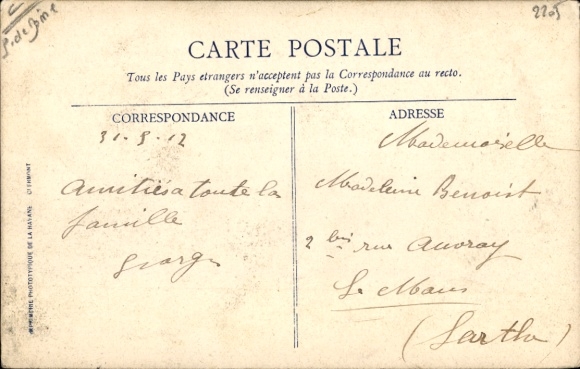 P. de Dôme
2205
CARTE POSTALE
Tous les Pays etrangers n'acceptent pas la Correspondance au recto.
(Se renseigner à la Poste.)
CORRESPONDANCE
31-8-12
Amitiés a toute la
famille
Georges
ADRESSE
Mademoiselle
Madeleine Benoist
2 bis rue Auvray
Le Mans
(Sarthe)
IMPRIMERIE PHOTOTYPIQUE DE LA HAVANE CLERMONT